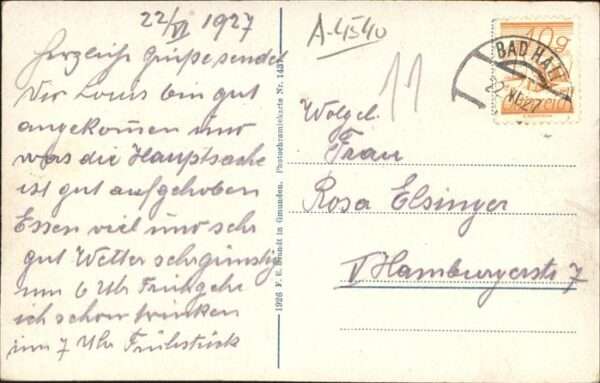 22/VI 1927
Herzliche Grüße sendet
Dir Louis bin gut
angekommen und
was die Hauptsache
ist gut aufgehoben
Essen viel und sehr
gut Wetter sehr günstig
um 6 Uhr Früh gehe
ich schon trinken
um 7 Uhr Frühstück
1926 F. E. Brandt in Gmunden. Photochromiekarte Nr. 143
A-4540
11
10g
BAD HALL
22.VI.27
Wolgeb.
Frau
Rosa Elsinger
V Hamburgerstr 7